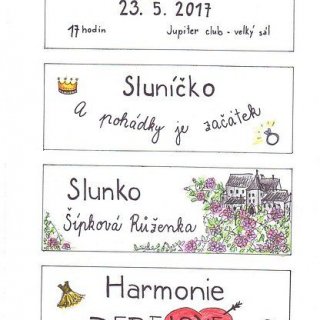 23. 5. 2017
17 hodin Jupiter club - velký sál
Sluníčko
A pohádky je začátek
Slunko
Šípková Růženka
Harmonie